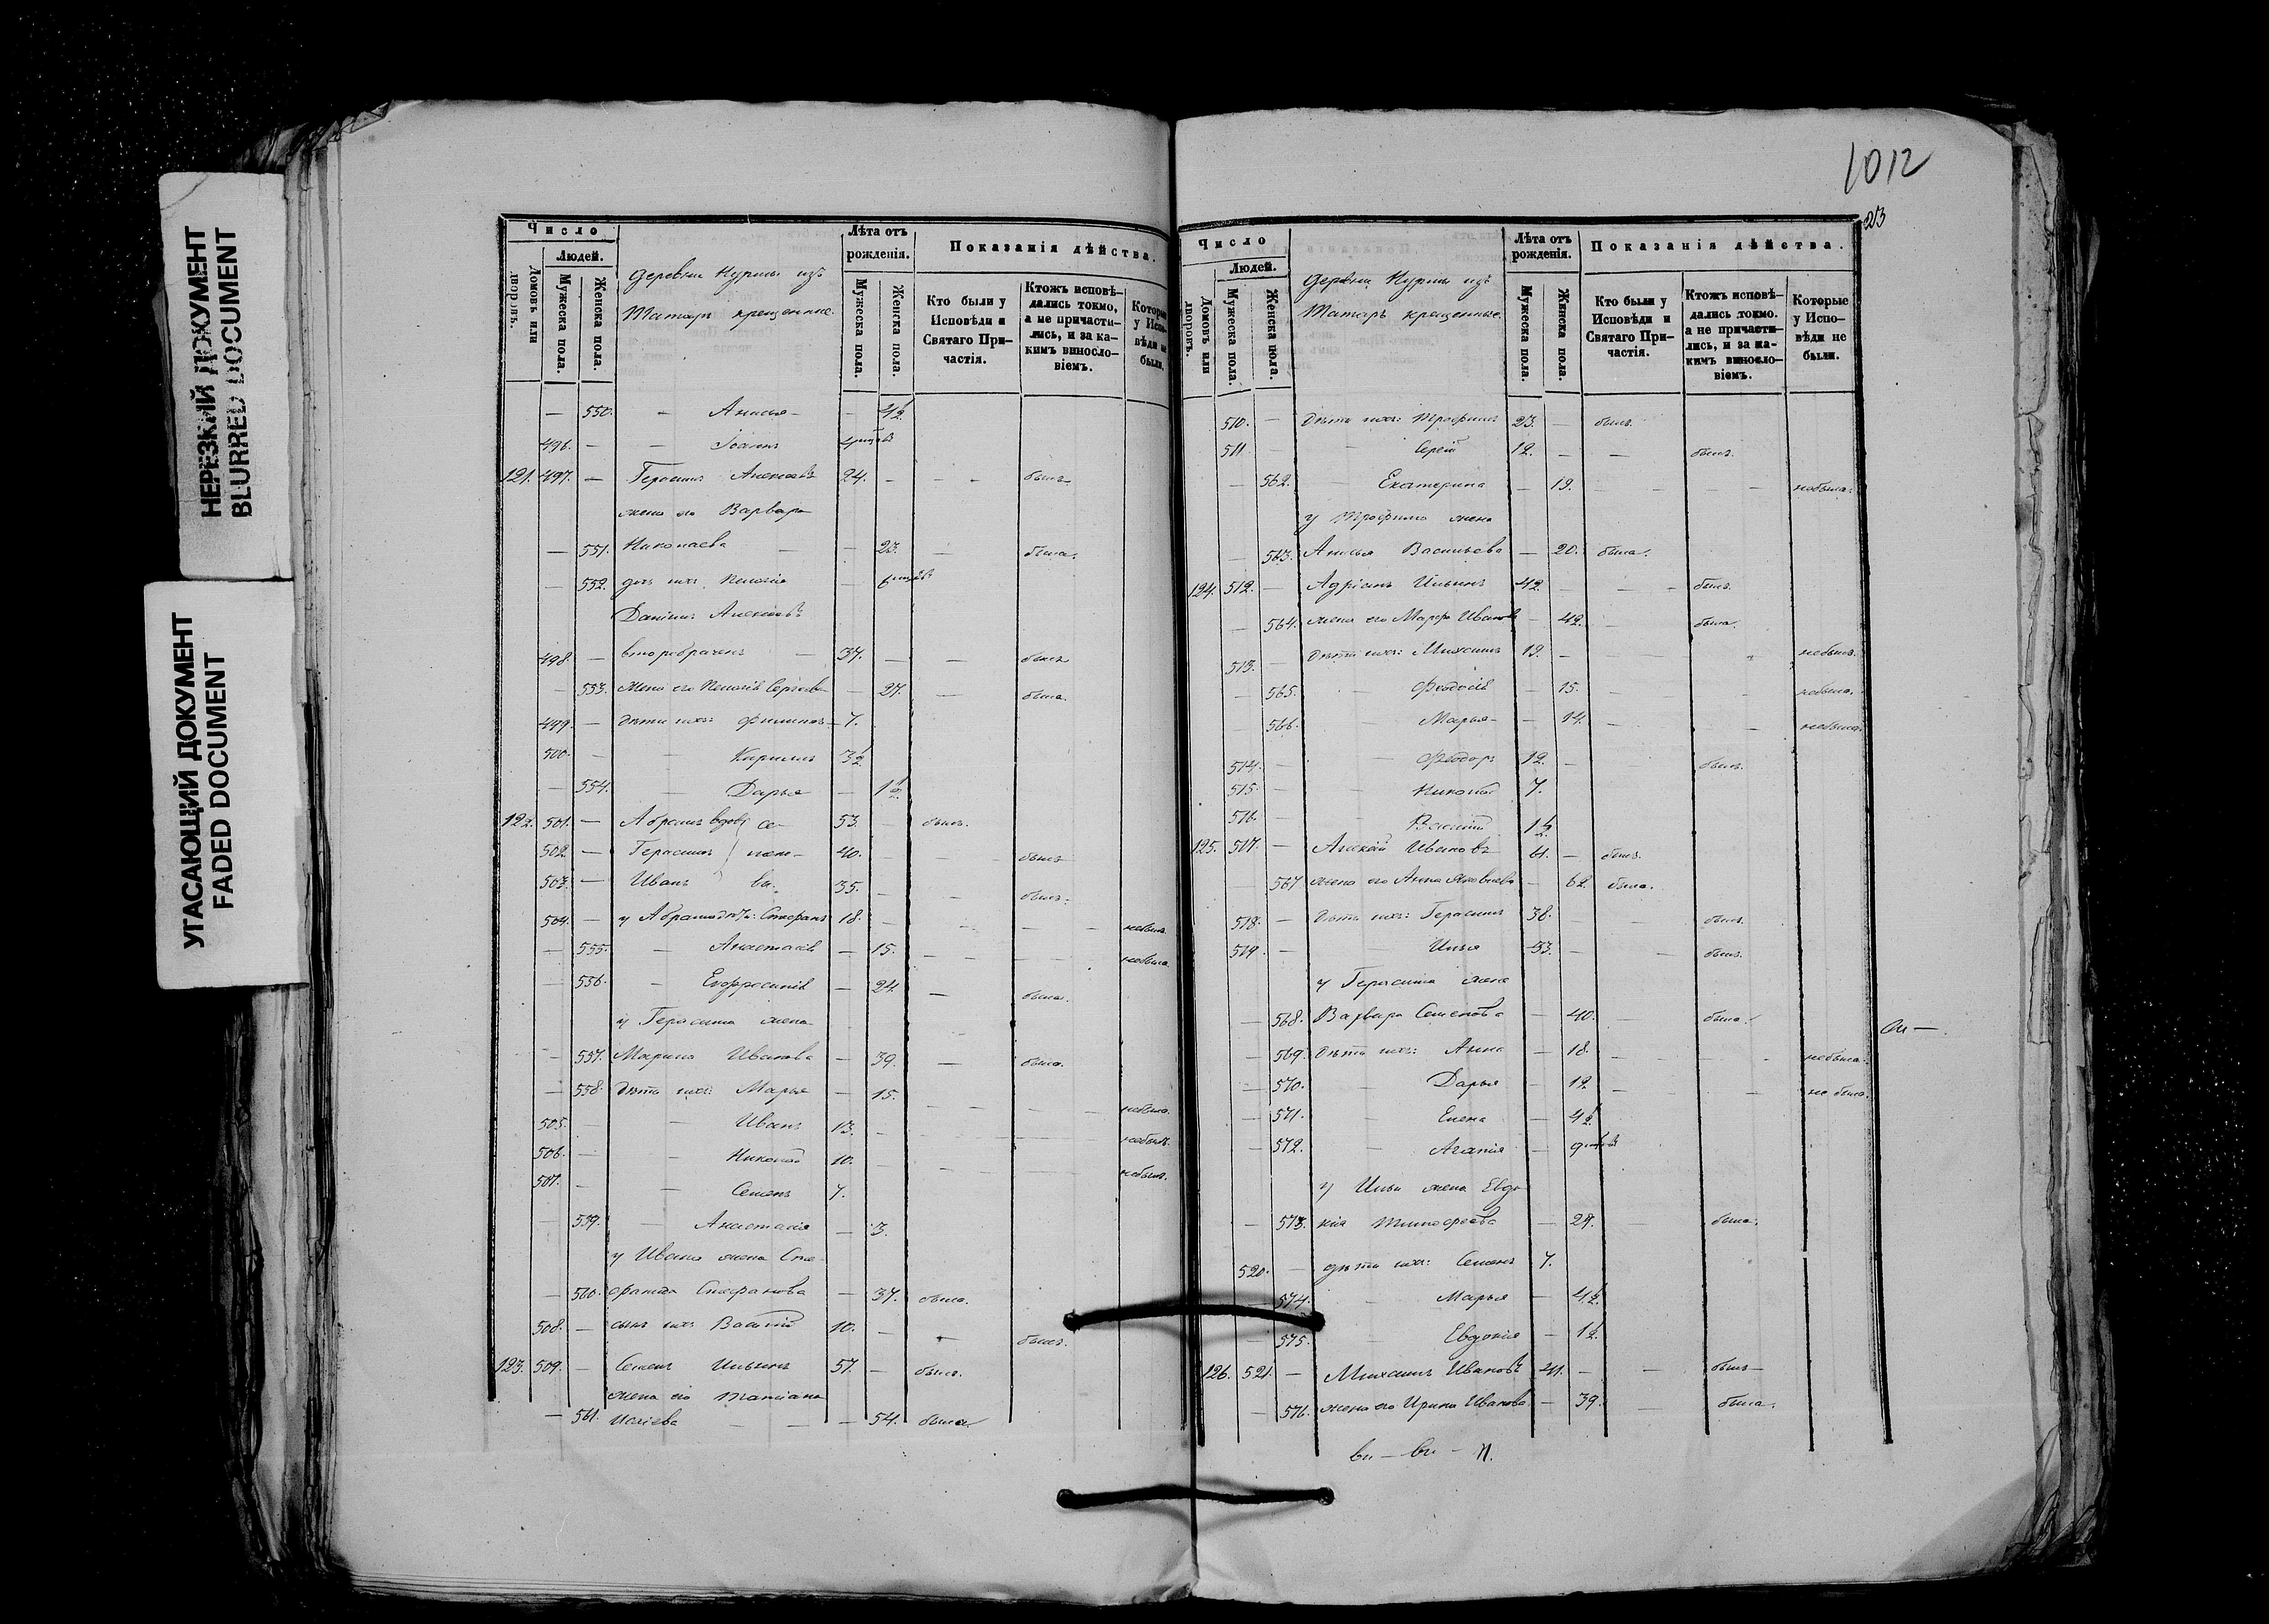 НЕРЕЗКИЙ ДОКУМЕНТ
BLURRED DOCUMENT
УГАСАЮЩИЙ ДОКУМЕНТ
FADED DOCUMENT
Число
Людей.
Домовъ или дворовъ.
Мужеска пола.
Женска пола.
деревни Курмы изъ
Татаръ крещенные.
Лѣта отъ рожденія.
Мужеска пола.
Женска пола.
Показанія дѣйства.
Кто были у Исповѣди и Святаго Причастія.
Ктожъ исповѣдались токмо, а не причастились, и за какимъ винословіемъ.
Которые у Исповѣди не были.
— 550. — Анисья — — 4½
496. — — Іоаннъ
121. 497. — Герасимъ Алексѣевъ 24. — — — былъ
жена его Варвара
— 551. Николаева — — 23. — была.
— 552. дочь ихъ Пелагія — 6
Даніилъ Алексѣевъ
498. — второбрачный — 37. — — былъ
— 553. жена его Пелагія Сергѣева — 27. — была.
499. — дѣти ихъ: Филиппъ 7.
500. — — Кириллъ 3½
— 554. — Дарья — 1½
122. 501. — Абрамъ вдовъ 53. — былъ.
502. — Герасимъ 40. — — былъ
503. — Иванъ 35. — былъ.
504. — у Абрама дѣти: Стефанъ 18. — — — небылъ.
— 555. — Анастасія — 15. — — — небыла
— 556. — Евфросинія — 24 — была.
у Герасима жена
— 557. Марина Иванова — 39. — была.
— 558. дѣти ихъ: Марья — 15. — — — небыла.
505. — — Иванъ 13. — — — небылъ.
506. — — Николай 10. — — — небылъ.
507. — — Семенъ 7.
— 559. — Анастасія — 3.
у Ивана жена Сте-
— 560. фанида Стефанова — 37. была.
508. — сынъ ихъ Василій 10. — — былъ.
123. 509. — Семенъ Ильинъ 57. — былъ.
жена его Татіана
— 561. Исаева — — — 54. была.
1012
Число
Людей.
Домовъ или дворовъ.
Мужеска пола.
Женска пола.
деревни Курмы изъ
Татаръ крещенные.
Лѣта отъ рожденія.
Мужеска пола.
Женска пола.
Показанія дѣйства.
Кто были у Исповѣди и Святаго Причастія.
Ктожъ исповѣдались токмо, а не причастились, и за какимъ винословіемъ.
Которые у Исповѣди не были.
510. — дѣти ихъ: Трофимъ 23. — былъ.
511. — Сергѣй 12. — — былъ.
— 562. Екатерина — 19. — — — небыла.
у Трофима жена
— 563. Анисья Васильева — 20. была.
124. 512. — Адріанъ Ильинъ 42. — — — былъ.
— 564. жена его Марфа Иванова — 42. — была.
513. — дѣти ихъ: Михаилъ 19. — — небылъ.
— 565. — Феодосія — 15. — — небыла.
— 566. — Марья — — 14. — — небыла.
514. — — Феодоръ 12. — — былъ.
515. — — Николай 7.
516. — — Василій 1½
125. 517. — Алексѣй Ивановъ 61. — былъ.
— 567 жена его Анна Яковлева — 62. была.
518. — дѣти ихъ: Герасимъ 38. — — былъ.
519. — — Илья 33. — — былъ.
у Герасима жена
— 568. Варвара Семенова — 40. — была.
— 569. дѣти ихъ: Анна — 18. — — небыла.
— 570. — Дарья — 12. — — не была.
— 571. — Елена — 4½
— 572. — Агапія — 9
у Ильи жена Евдо-
— 573. кія Тимофеева — 29. — была.
520. — дѣти ихъ: Семенъ 7.
— 574. — Марья — 4½
— 575. — Евдокія — 1½
126. 521. — Михаилъ Ивановъ 41. — — былъ
— 576. жена его Ирина Иванова — 39. — была.